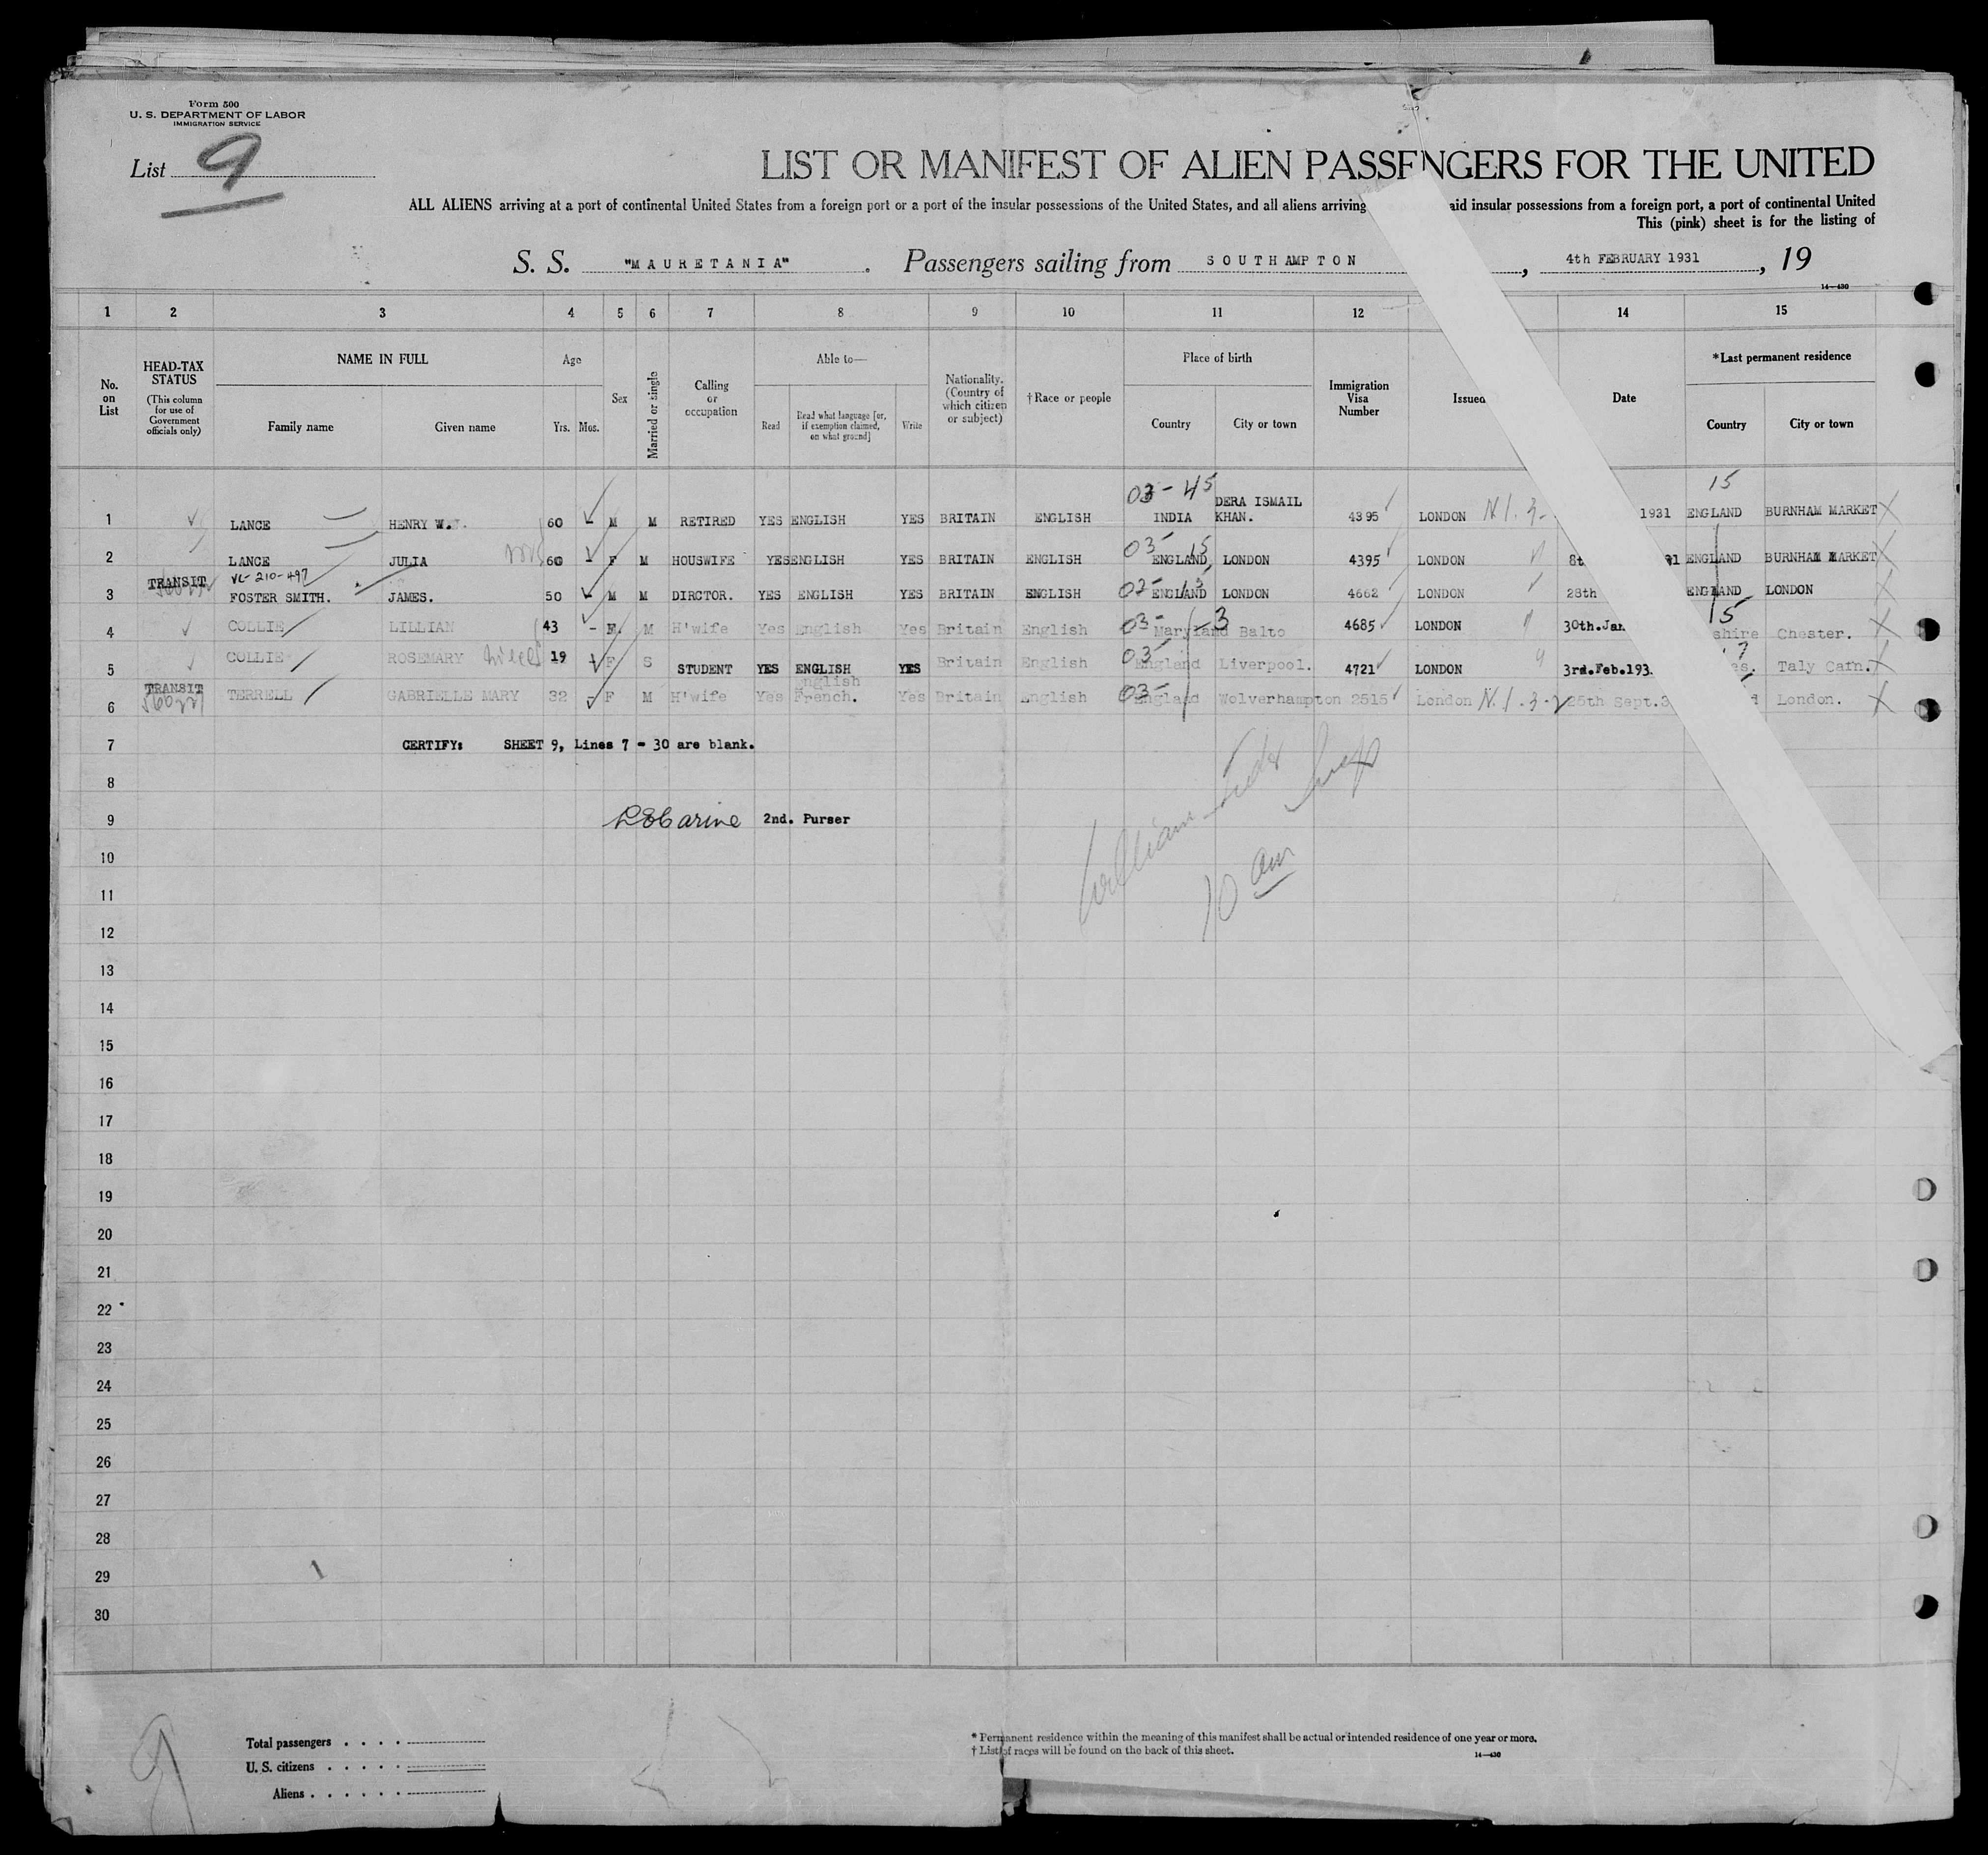 Form 500
U. S. DEPARTMENT OF LABOR
IMMIGRATION SERVICE
List 9
LIST OR MANIFEST OF ALIEN PASSENGERS FOR THE UNITED
ALL ALIENS arriving at a port of continental United States from a foreign port or a port of the insular possessions of the United States, and all aliens arriving aid insular possessions from a foreign port, a port of continental United
This (pink) sheet is for the listing of
S. S. "MAURETANIA". Passengers sailing from SOUTHAMPTON, 4th FEBRUARY 1931, 19
14—430
1 2 3 4 5 6 7 8 9 10 11 12 14 15
No. on List
HEAD-TAX STATUS (This column for use of Government officials only)
NAME IN FULL
Family name Given name
Age
Yrs. Mos.
Sex
Married or single
Calling or occupation
Able to—
Read Read what language [or, if exemption claimed, on what ground] Write
Nationality. (Country of which citizen or subject)
†Race or people
Place of birth
Country City or town
Immigration Visa Number
Issued
Date
*Last permanent residence
Country City or town
03-45 15
1 LANCE HENRY W. 60 - M M RETIRED YES ENGLISH YES BRITAIN ENGLISH INDIA DERA ISMAIL KHAN. 4395 LONDON N.I.3- 1931 ENGLAND BURNHAM MARKET
2 LANCE JULIA 60 - F M HOUSWIFE YES ENGLISH YES BRITAIN ENGLISH 03 15 ENGLAND, LONDON 4395 LONDON 8t 31 ENGLAND BURNHAM MARKET
TRANSIT VL-210-497
3 FOSTER SMITH. JAMES. 50 - M M DIRCTOR. YES ENGLISH YES BRITAIN ENGLISH ENGLAND LONDON 4662 LONDON 28th ENGLAND LONDON
4 COLLIE LILLIAN 43 - F. M H'wife Yes English Yes Britain English 03- 3 Maryland Balto 4685 LONDON 30th.Jan 15 shire Chester.
5 COLLIE ROSEMARY 19 F S STUDENT YES ENGLISH YES Britain English 03 England Liverpool. 4721 LONDON 3rd.Feb.193 es. Taly Carn.
TRANSIT
6 TERRELL GABRIELLE MARY 32 - F M H'wife Yes English French. Yes Britain English 03 England Wolverhampton 2515 London N.I.3-2 25th Sept.3 d London.
7 CERTIFY: SHEET 9, Lines 7 - 30 are blank.
8
9 2nd. Purser
William
10
10 am
11
12
13
14
15
16
17
18
19
20
21
22
23
24
25
26
27
28
29
30
Total passengers . . . .
U. S. citizens . . . . .
Aliens . . . . . .
* Permanent residence within the meaning of this manifest shall be actual or intended residence of one year or more.
† List of races will be found on the back of this sheet.
14—430